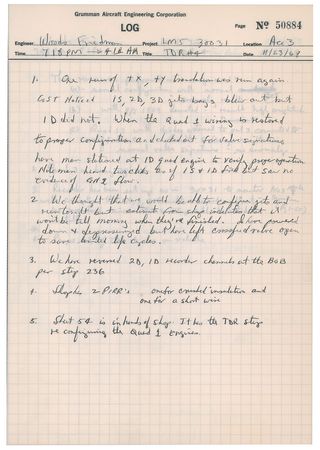 Grumman Aircraft Engineering Corporation
LOG
Page No 50884
Engineer Woods Friedman Project LM5 30031 Location Acs 3
Time 718 PM → 4 AM Title TDR #4 Date 11/23/69
1. One run of +X, +Y translation was run again
GST Noticed 1S, 2D, 3D jets being blown out but
1D did not. When the Quad 1 wiring is restored
to proper configuration a
have man stationed at 1D quad engine to verify proper operation
Note man heard two clicks of 1S & 1D fire but saw no
evidence of GN2 flow.
2. We thought that we would be able to configure jets and
but from shop that it
would be till morning when they're finished. I have powered
down & depressurized but have left crossfeed valve open
to save limited life cycles.
3. We have reversed 2D, 1D recorder channels at the BOB
per step 236
4. 2 PIRR's one for crunched insulation and
one for a short wire
5. Sht 54 is in hands of shop. It has the TDR step
re configuring the Quad 1 Engines.